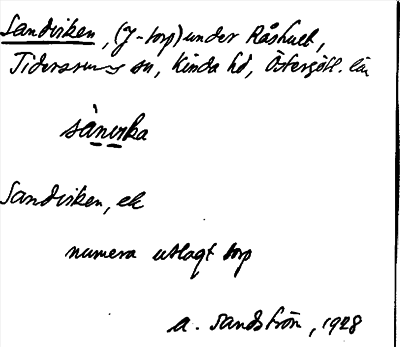 Sandviken, (J-torp) under Råshult,
Tidersrums sn, Kinda hd, Östergötl. län
sànvika
Sandviken, ek
numera utlagt torp
A. Sandström, 1928